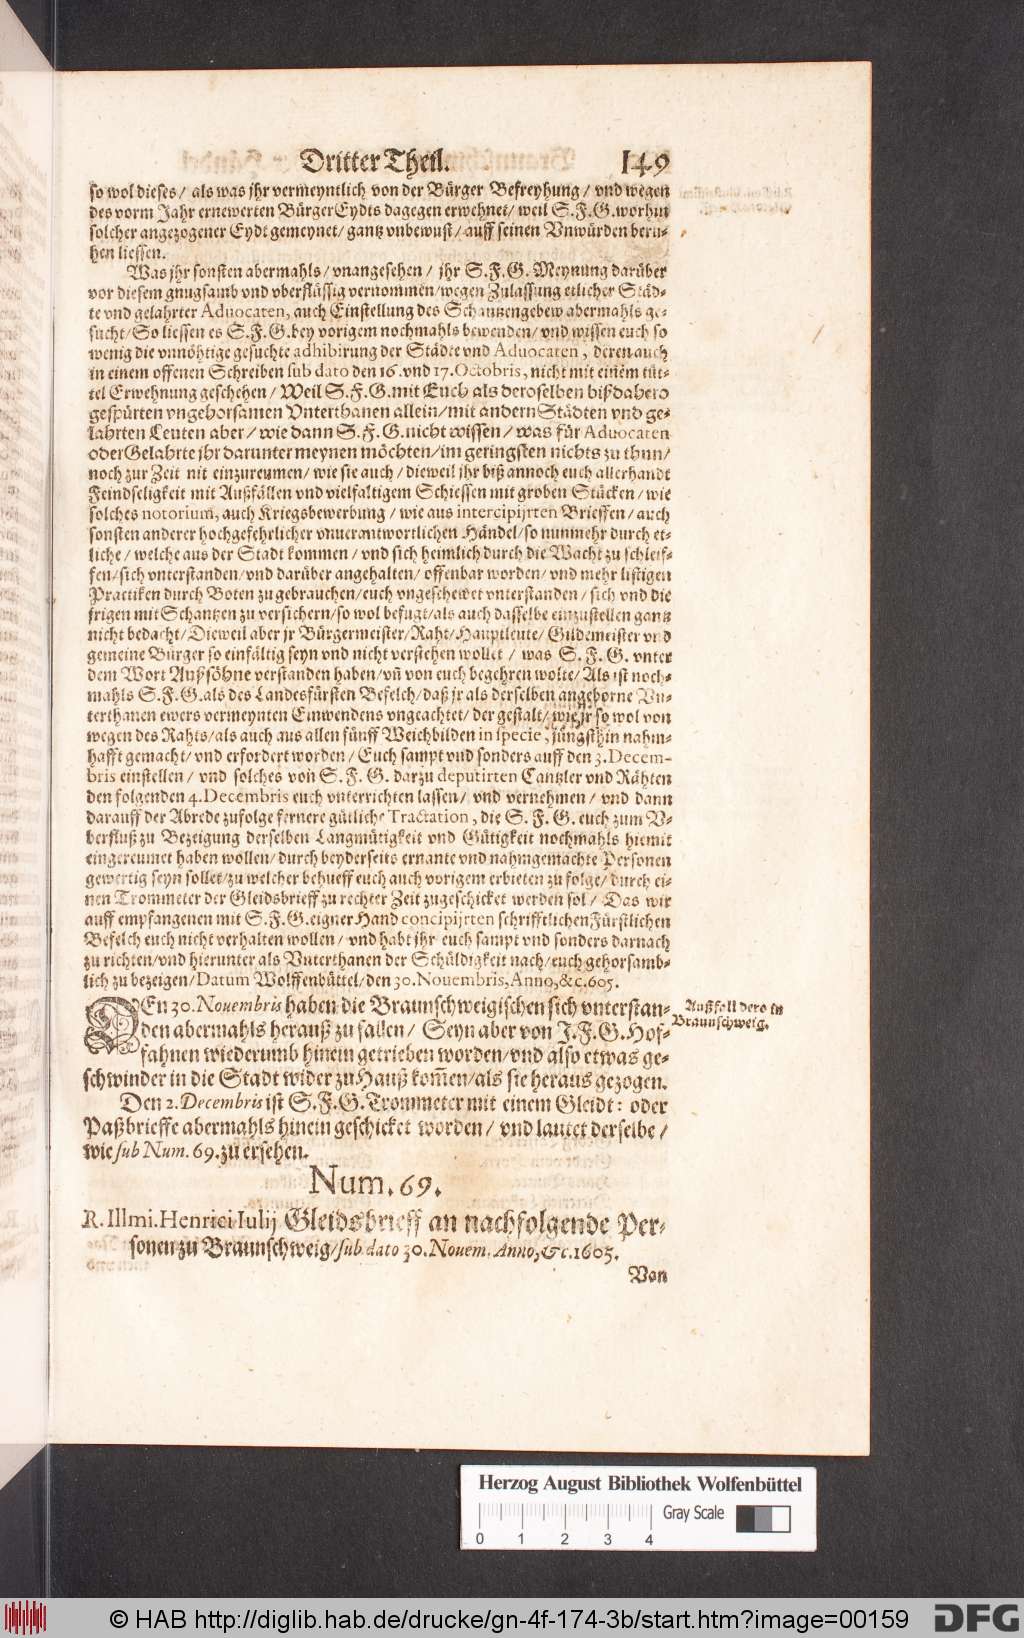 Dritter Theil. 149
so wol dieses / als was jhr vermeyntlich von der Bürger Befreyhung / vnd wegen
des vorm Jahr ernewerten BürgerEydts dagegen erwehnet / weil S.F.G. worhin
solcher angezogener Eydt gemeynet / gantz vnbewust / auff seinen Vnwürden beru-
hen liessen.
Was jhr sonsten abermahls / vnangesehen / jhr S.F.G. Meynung darüber
vor diesem gnugsamb vnd vberflüssig vernommen / wegen Zulassung etlicher Städ-
te vnd gelahrter Aduocaten, auch Einstellung des Schantzengebew abermahls ge-
sucht / So liessen es S.F.G. bey vorigem nochmahls bewenden / vnd wissen euch so
wenig die vnnöhtige gesuchte adhibirung der Städte vnd Aduocaten, deren auch
in einem offenen Schreiben sub dato den 16. vnd 17. Octobris, nicht mit einem tüt-
tel Erwehnung geschehen / Weil S.F.G. mit Euch als deroselben bißdahero
gespürten vngehorsamen Vnterthanen allein / mit andern Städten vnd ge-
lahrten Leuten aber / wie dann S.F.G. nicht wissen / was für Aduocaten
oder Gelahrte jhr darunter meynen möchten / im geringsten nichts zu thun /
noch zur Zeit nit einzureumen / wie sie auch / dieweil jhr biß annoch euch allerhandt
Feindseligkeit mit Außfällen vnd vielfaltigem Schiessen mit groben Stücken / wie
solches notorium, auch Kriegsbewerbung / wie aus intercipijrten Brieffen / auch
sonsten anderer hochgefehrlicher vnuerantwortlichen Händel / so nunmehr durch et-
liche / welche aus der Stadt kommen / vnd sich heimlich durch die Wacht zu schleif-
fen / sich vnterstanden / vnd darüber angehalten / offenbar worden / vnd mehr listigen
Practiken durch Boten zugebrauchen / euch vngeschewet vnterstanden / sich vnd die
jrigen mit Schantzen zu versichern / so wol befugt / als auch dasselbe einzustellen gantz
nicht bedacht / Dieweil aber jr Bürgermeister / Raht / Hauptleute / Gildemeister vnd
gemeine Bürger so einfältig seyn vnd nicht verstehen wollet / was S. F. G. vnter
dem Wort Außsöhne verstanden haben / vn̄ von euch begehren wolte / Als ist noch-
mahls S.F.G. als des Landesfürsten Befelch / daß jr als derselben angeborne Vn-
terthanen ewers vermeynten Einwendens vngeachtet / der gestalt / wie jr so wol von
wegen des Rahts / als auch aus allen fünff Weichbilden in specie, jüngsthin nahm-
hafft gemacht / vnd erfordert worden / Euch sampt vnd sonders auff den 3. Decem-
bris einstellen / vnd solches von S. F. G. darzu deputirten Cantzler vnd Rähten
den folgenden 4. Decembris euch vnterrichten lassen / vnd vernehmen / vnd dann
darauff der Abrede zufolge fernere gütliche Tractation, die S. F. G. euch zum V-
berfluß zu Bezeigung derselben Langmütigkeit vnd Gütigkeit nochmahls hiemit
eingereumet haben wollen / durch beyderseits ernante vnd nahmgemachte Personen
gewertig seyn sollet / zu welcher behueff euch auch vorigem erbieten zu folge / durch ei-
nen Trommeter der Gleidsbrieff zu rechter Zeit zugeschicket werden sol / Das wir
auff empfangenen mit S.F.G. eigner Hand concipijrten schrifftlichen Fürstlichen
Befelch euch nicht verhalten wollen / vnd habt jhr euch sampt vnd sonders darnach
zu richten / vnd hierunter als Vnterthanen der Schüldigkeit nach / euch gehorsamb-
lich zu bezeigen / Datum Wolffenbüttel / den 30. Nouembris, Anno, &c. 605.
DEn 30. Nouembris haben die Braunschweigischen sich vnterstan-
den abermahls herauß zu fallen / Seyn aber von J.F.G. Hof-
fahnen wiederumb hinein getrieben worden / vnd also etwas ge-
schwinder in die Stadt wider zu Hauß kom̄en / als sie heraus gezogen.
Außfall dero in
Braunschweig.
Den 2. Decembris ist S.F.G. Trommeter mit einem Gleidt: oder
Paßbrieffe abermahls hinein geschicket worden / vnd lautet derselbe /
wie sub Num. 69. zu ersehen.
Num. 69.
R. Illmi. Henrici Iulij Gleidsbrieff an nachfolgende Per-
sonen zu Braunschweig / sub dato 30. Nouem. Anno, &c. 1605.
Von
Herzog August Bibliothek Wolfenbüttel
Gray Scale
0 1 2 3 4
© HAB http://diglib.hab.de/drucke/gn-4f-174-3b/start.htm?image=00159
DFG